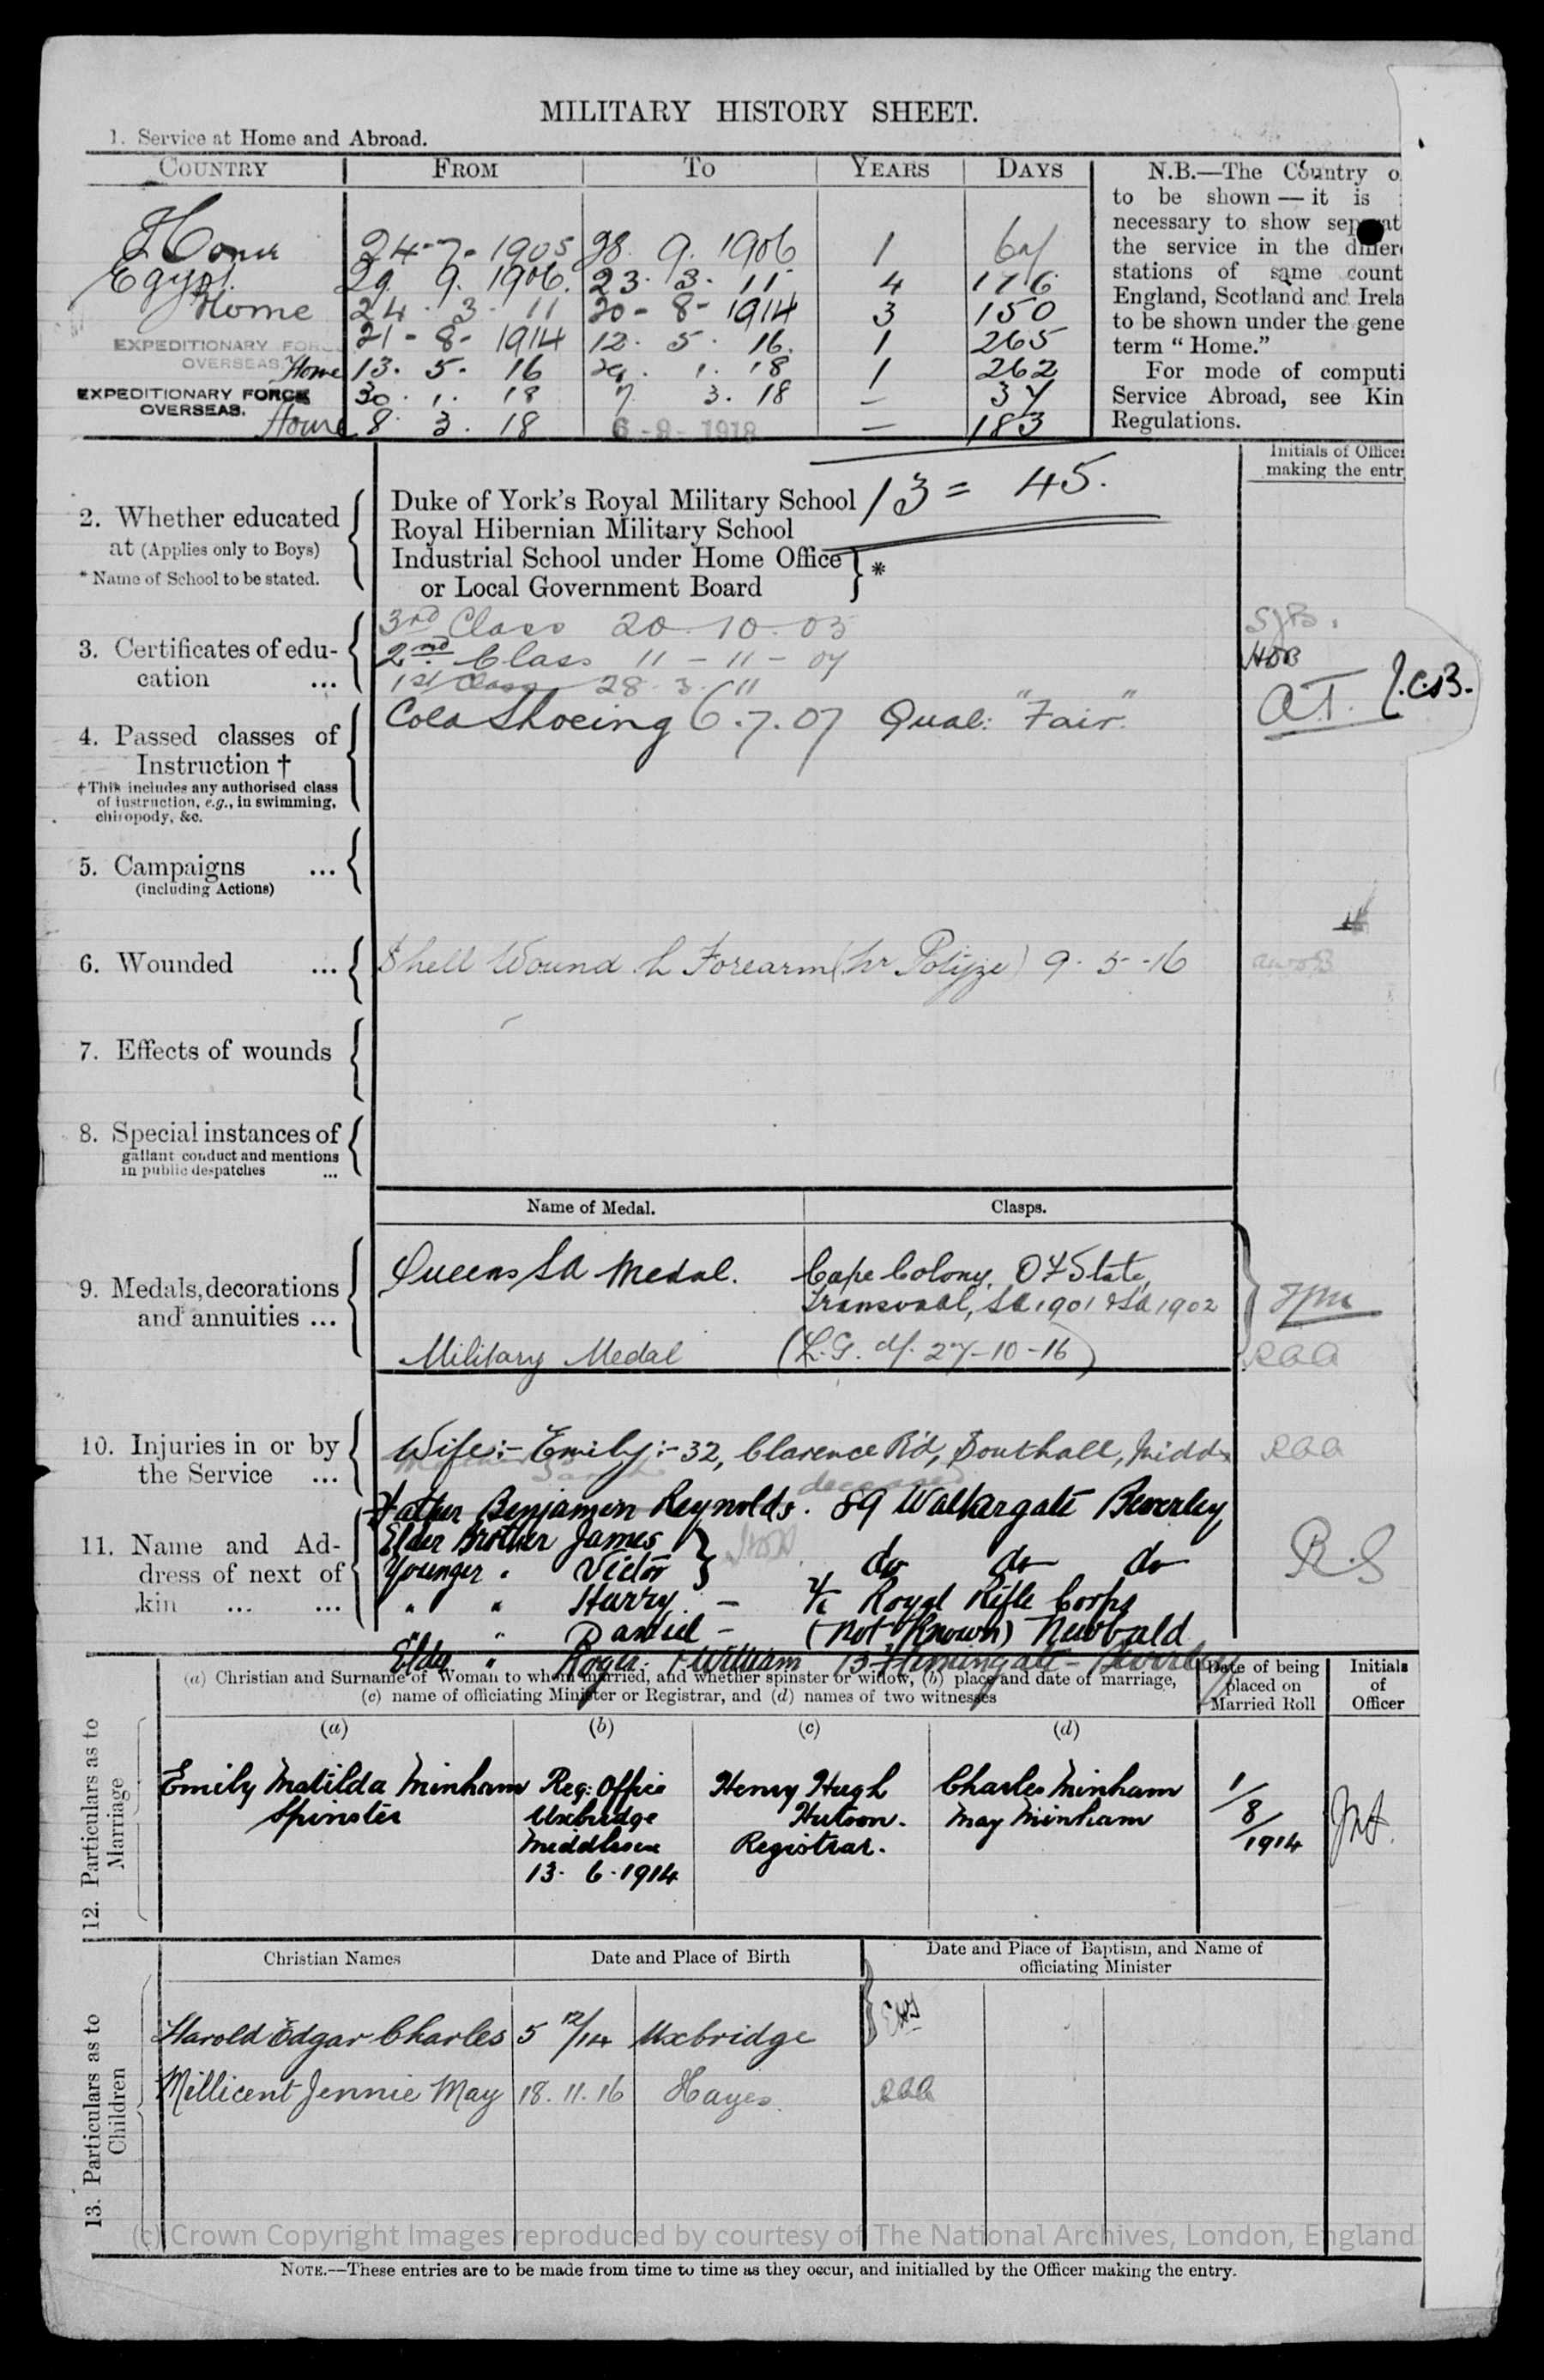 MILITARY HISTORY SHEET.
1. Service at Home and Abroad.
COUNTRY FROM TO YEARS DAYS
Home 24-7-1905 28. 9. 1906 1 67
Egypt. 29. 9. 1906. 23. 3. 11 4 176
Home 24. 3. 11 20-8-1914 3 150
EXPEDITIONARY FORCE OVERSEAS 21-8-1914 12. 5. 16. 1 265
Home 13. 5. 16 29. 1. 18 1 262
EXPEDITIONARY FORCE OVERSEAS. 30. 1. 18 7 3. 18 — 37
Home 8. 3. 18 6-9-1918 — 183
13 = 45.
N.B.—The Country o
to be shown — it is
necessary to show separat
the service in the differe
stations of same count
England, Scotland and Irela
to be shown under the gene
term “ Home.”
For mode of computi
Service Abroad, see Kin
Regulations.
Initials of Officer
making the entr
2. Whether educated
at (Applies only to Boys)
* Name of School to be stated.
Duke of York's Royal Military School
Royal Hibernian Military School
Industrial School under Home Office
or Local Government Board } *
3. Certificates of edu-
cation ...
3rd Class 20-10-05
2nd Class 11-11-07 HOB
1st Class 28. 3. 11
4. Passed classes of
Instruction †
† This includes any authorised class
of instruction, e.g., in swimming,
chiropody, &c.
Cold Shoeing 6.7.07 Qual: "Fair". A.T. J.C.B.
5. Campaigns ...
(including Actions)
6. Wounded ...
Shell Wound L Forearm (Nr Potijze) 9-5-16
7. Effects of wounds
8. Special instances of
gallant conduct and mentions
in public despatches ...
9. Medals, decorations
and annuities ...
Name of Medal. Clasps.
Queens SA Medal. Cape Colony, O F State,
Transvaal, SA 1901 & SA 1902
Military Medal (L.G. d/. 27-10-16) RAA
10. Injuries in or by
the Service ...
Wife:- Emily:- 32, Clarence Rd, Southall, Middx RAA
11. Name and Ad-
dress of next of
kin ... ...
deceased
Father Benjamin Reynolds. 89 Walkergate Beverley
Elder Brother James
Younger " Victor } do do do R.S
" " Harry — Royal Rifle Corps
" " Daniel — (Not Known) Newbald
Elder " Roger William 13 Flemingate - Beverley
12. Particulars as to
Marriage
(a) Christian and Surname of Woman to whom married, and whether spinster or widow, (b) place and date of marriage,
(c) name of officiating Minister or Registrar, and (d) names of two witnesses
Date of being
placed on
Married Roll
Initials
of
Officer
(a) (b) (c) (d)
Emily Matilda Minham Reg: Office Henry Hugh Charles Minham 1/8/1914
Spinster Uxbridge Hutson. May Minham
Middlesex Registrar.
13. 6. 1914
13. Particulars as to
Children
Christian Names Date and Place of Birth Date and Place of Baptism, and Name of
officiating Minister
Harold Edgar Charles 5 12/14 Uxbridge
Millicent Jennie May 18. 11. 16 Hayes. RAA
(c) Crown Copyright Images reproduced by courtesy of The National Archives, London, England
NOTE.—These entries are to be made from time to time as they occur, and initialled by the Officer making the entry.